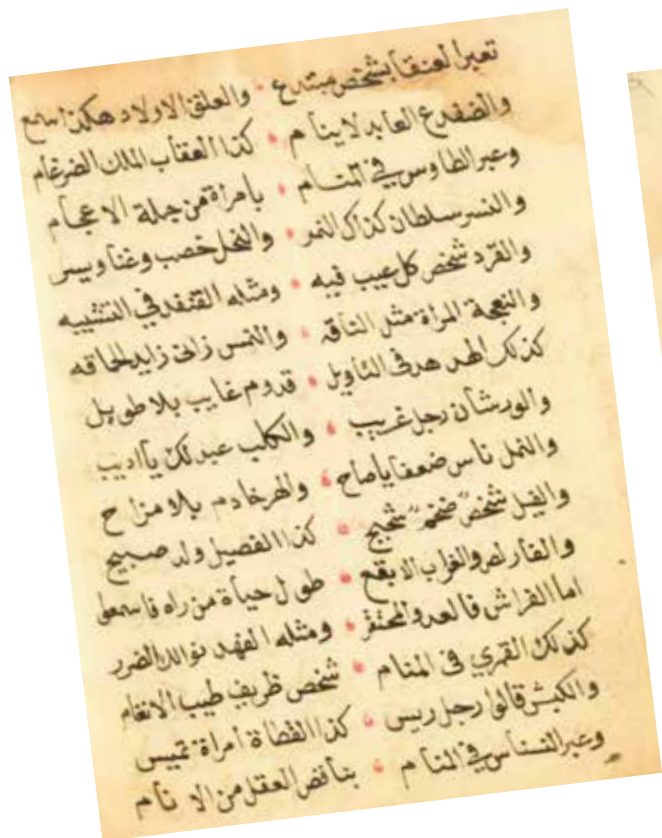 تعبر العنقا بشخص مبتدع والعلق الاولاد هكذا اسمع
والضفدع العابد لاينام كذا العقاب الملك الضرغام
وعبر الطاوس في المنام بامراة من جملة الاعجام
والنسر سلطان كذاك النمر والنحل خصب وغنا ويسر
والقرد شخص كل عيب فيه ومثله القنفد في التشبيه
والنعجة المراة مثل الناقه والنمس زانى زايد الحاقه
كذلك الهدهد فى التاويل قدوم غايب بلا طويل
والورشان رجل غريب والكلب عبد لك يا اديب
والنمل ناس ضعفا ياصاح والهر خادم بلا مزاح
والفيل شخص ضخم شجيج كذا الفصيل ولد صبيح
والفار لص والغراب الابقع طول حياة من راه فاسمعوا
اما الفراش فالعدو المحتقر ومثله الفهد الضرر
كذلك القمري فى المنام شخص ظريف طيب الانغام
والكبش قالوا رجل ريس كذا القطاة امراة تميس
وعبر النسناس في المنام بناقص العقل من الانام